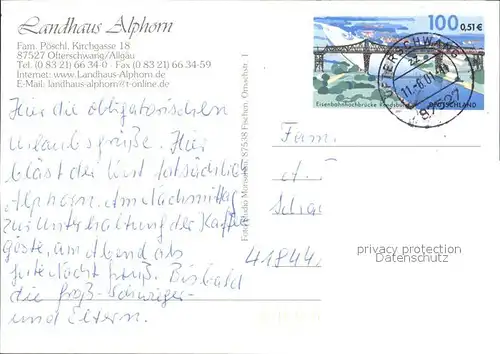 Landhaus Alphorn
Fam. Pöschl, Kirchgasse 18
87527 Ofterschwang/Allgäu
Tel. (0 83 21) 66 34-0 · Fax (0 83 21) 66 34-59
Internet: www.Landhaus-Alphorn.de
E-Mail: landhaus-alphorn@t-online.de
Hier die obligatorischen
Urlaubsgrüße. Hier
bläst der Wirt tatsächlich
Alphorn. Am Nachmittag
zur Unterhaltung der Kaffee
gäste, am Abend als
gute Nacht Gruß. Bis bald
die Groß-Schwieger-
und Eltern.
87538 Fischen
100 0,51€
Eisenbahnhochbrücke Rendsburg
DEUTSCHLAND
OFTERSCHWANG
87527
Fam.
418442
privacy protection
Datenschutz